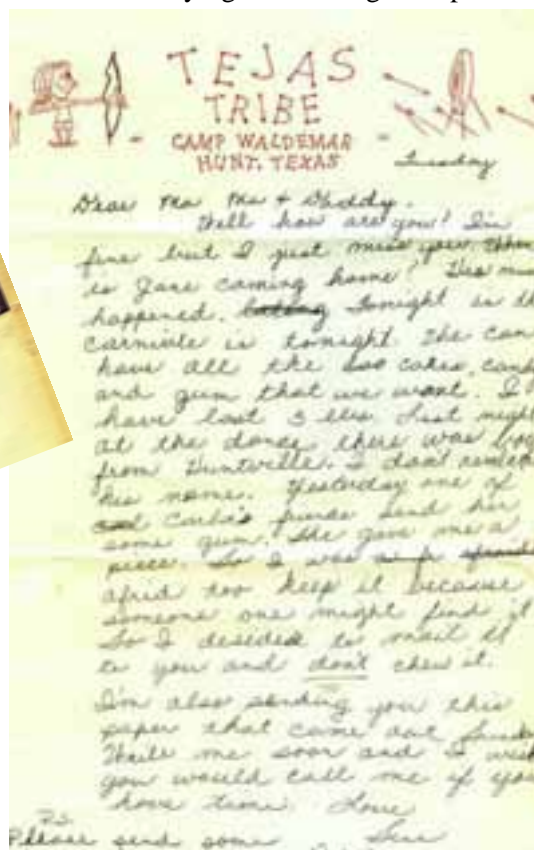 TEJAS
TRIBE
CAMP WALDEMAR
HUNT, TEXAS
Tuesday
Dear Ma Ma + Daddy,
Well how are you? I'm
fine but I just miss you. When
is Jane coming home?
happened. Tonight is the
carnivle is tonight the can
have all the coo cakes, candy
and gum that we want. I
have lost 3 lbs. Last night
at the dance there was boy
from Huntville. I don't remem
his name. Yesterday one of
Carla's friends send her
some gum. She gave me a
piece. So I was
afrid too keep it because
someone one might find it
So I desided to mail it
to you and don't chew it.
I'm also sending you this
paper that came out Sunday
Write me soon and I wish
you would call me if you
have time. Love
P.S.
Please send some